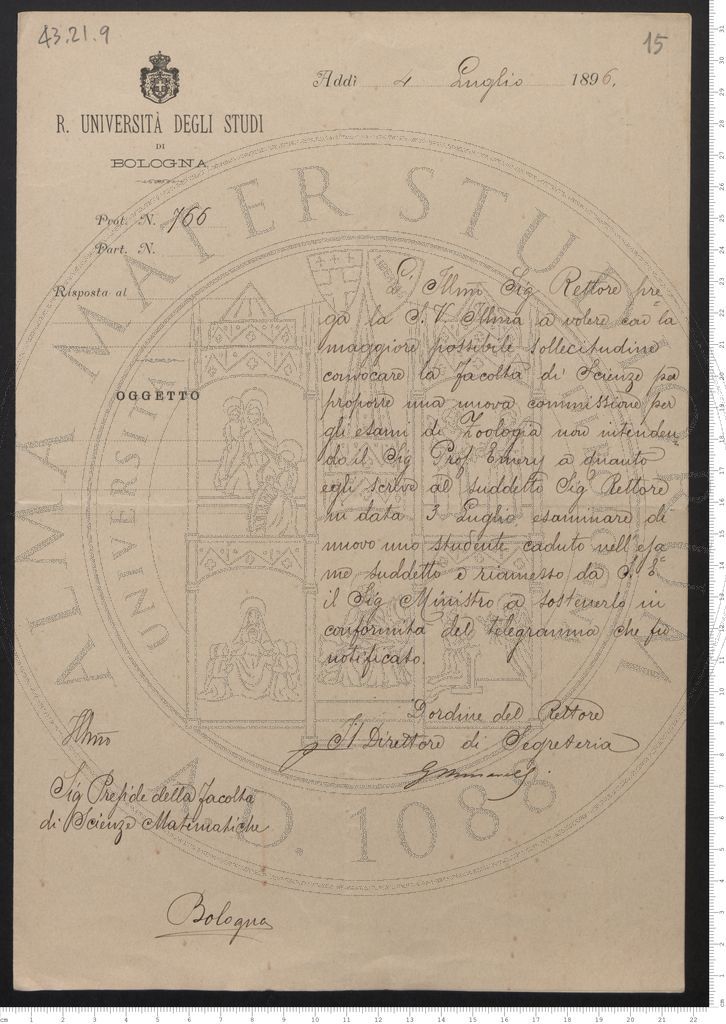 43.21.9
15
Addì 4 Luglio 1896.
R. UNIVERSITÀ DEGLI STUDI
DI
BOLOGNA
Prot. N. 766
Part. N.
Risposta al
OGGETTO
L' Illmo Sig Rettore pre=
ga la S. V. Illma a volere con la
maggiore possibile sollecitudine
convocare la facoltà di Scienze per
proporre una nuova commissione per
gli esami di Zoologia non intenden=
do il Sig Prof Emery a quanto
egli scrive al suddetto Sig Rettore
in data 3 Luglio esaminare di
nuovo uno studente caduto nell'esa=
me suddetto e riamesso da S. E.
il Sig Ministro a sostenerlo in
conformita del telegramma che fu
notificato.
D'ordine del Rettore
Il Direttore di Segreteria
Illmo
Sig Preside della facoltà
di Scienze Matematiche
Bologna
ALMA MATER STUDIORUM
UNIVERSITÀ
A.D. 1088